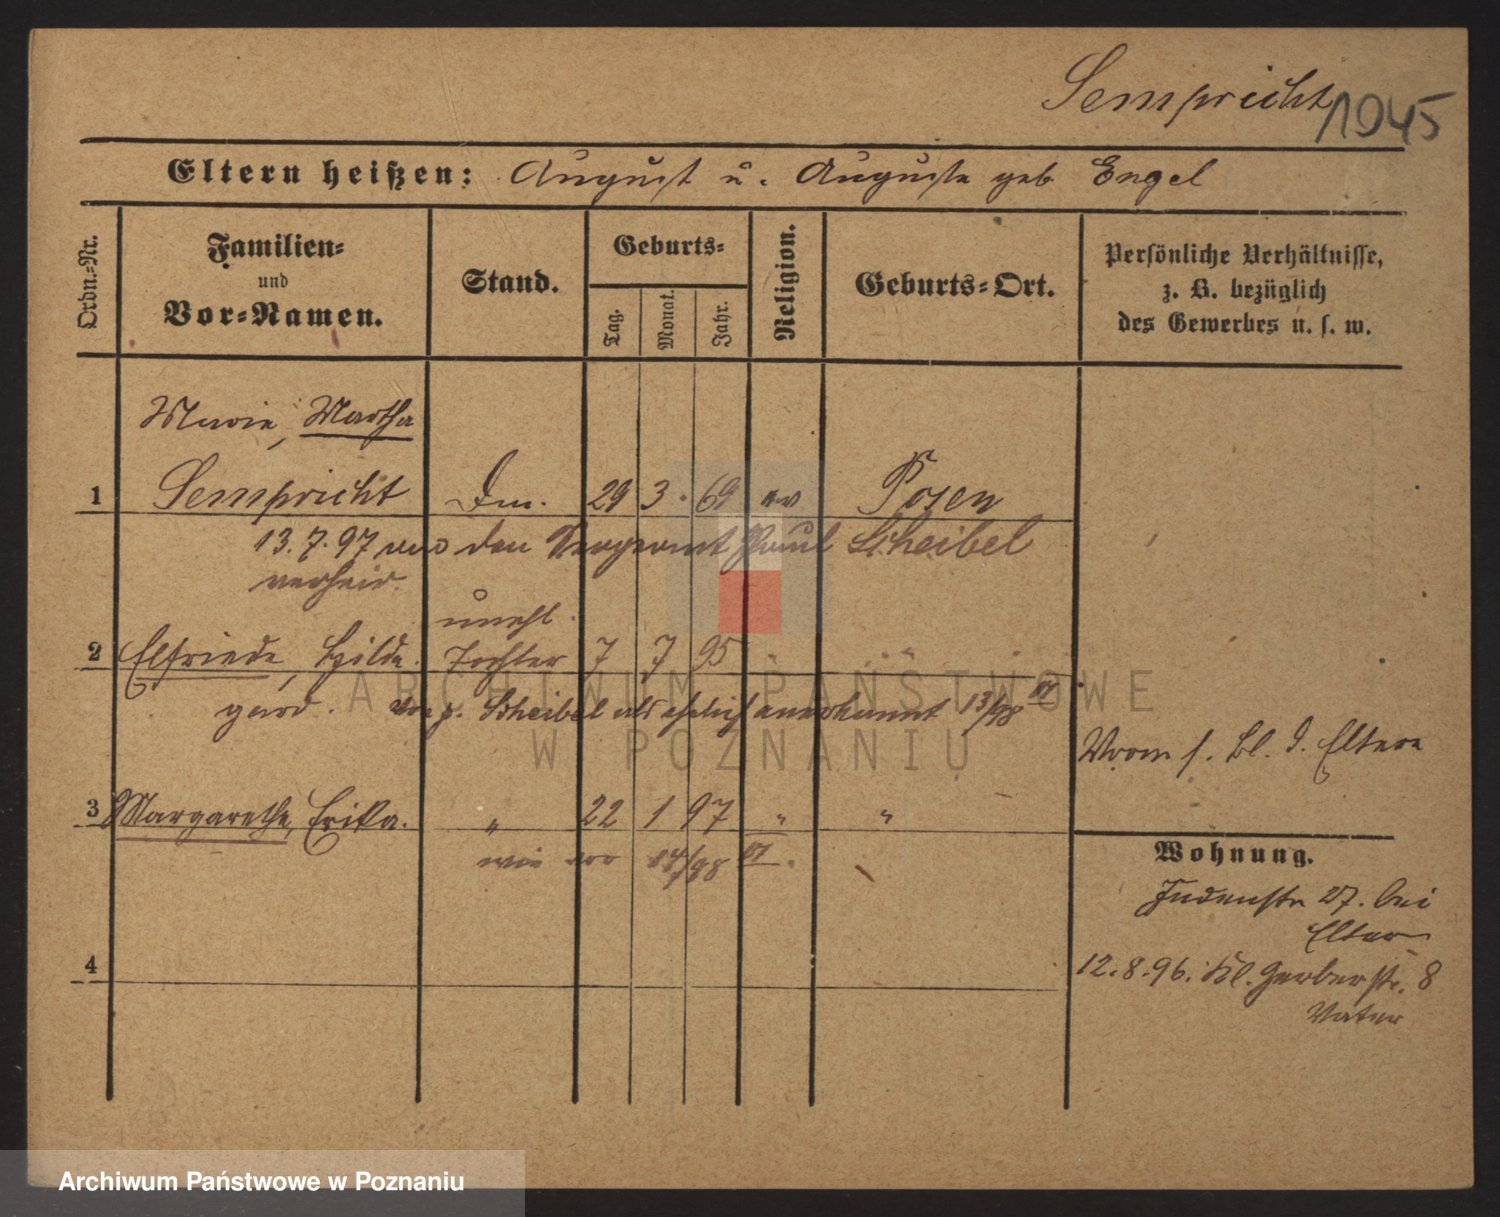 Sempricht 1045
Eltern heißen: August u. Auguste geb. Engel
Ordn.-Nr.
Familien-
und
Vor-Namen.
Stand.
Geburts-
Tag.
Monat.
Jahr.
Religion.
Geburts-Ort.
Persönliche Verhältnisse,
z. B. bezüglich
des Gewerbes u. s. w.
Marie, Martha
1 Sempricht 29 3. 69 ev Posen
13.7.97 den Sergeant Paul Scheibel
verheir.
unehl.
2 Elfriede, Hilde- Tochter 7 7 95 " "
gard. Scheibel als ehelich anerkannt 13/98
Vorm s. Bl. d. Eltern
3 Margarethe, Erika. " 22 1 97 " "
wie vor 14/98
4
Wohnung.
Judenstr 27. bei
Eltern
12.8.96. Kl. Gerberstr. 8
Vater
ARCHIWUM PAŃSTWOWE
W POZNANIU
Archiwum Państwowe w Poznaniu